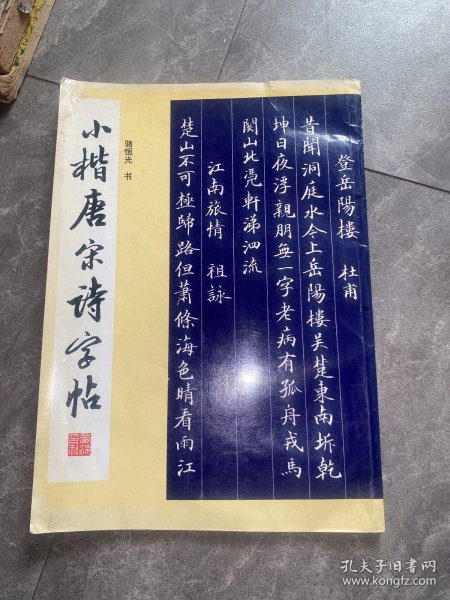 小楷唐宋诗字帖
骆恒光 书
登岳陽樓 杜甫
昔聞洞庭水今上岳陽樓吴楚東南坼乾
坤日夜浮親朋無一字老病有孤舟戎馬
関山北憑軒涕泗流
江南旅情 祖詠
楚山不可極歸路但蕭條海色晴看雨江
孔夫子旧书网
www.kongfz.com